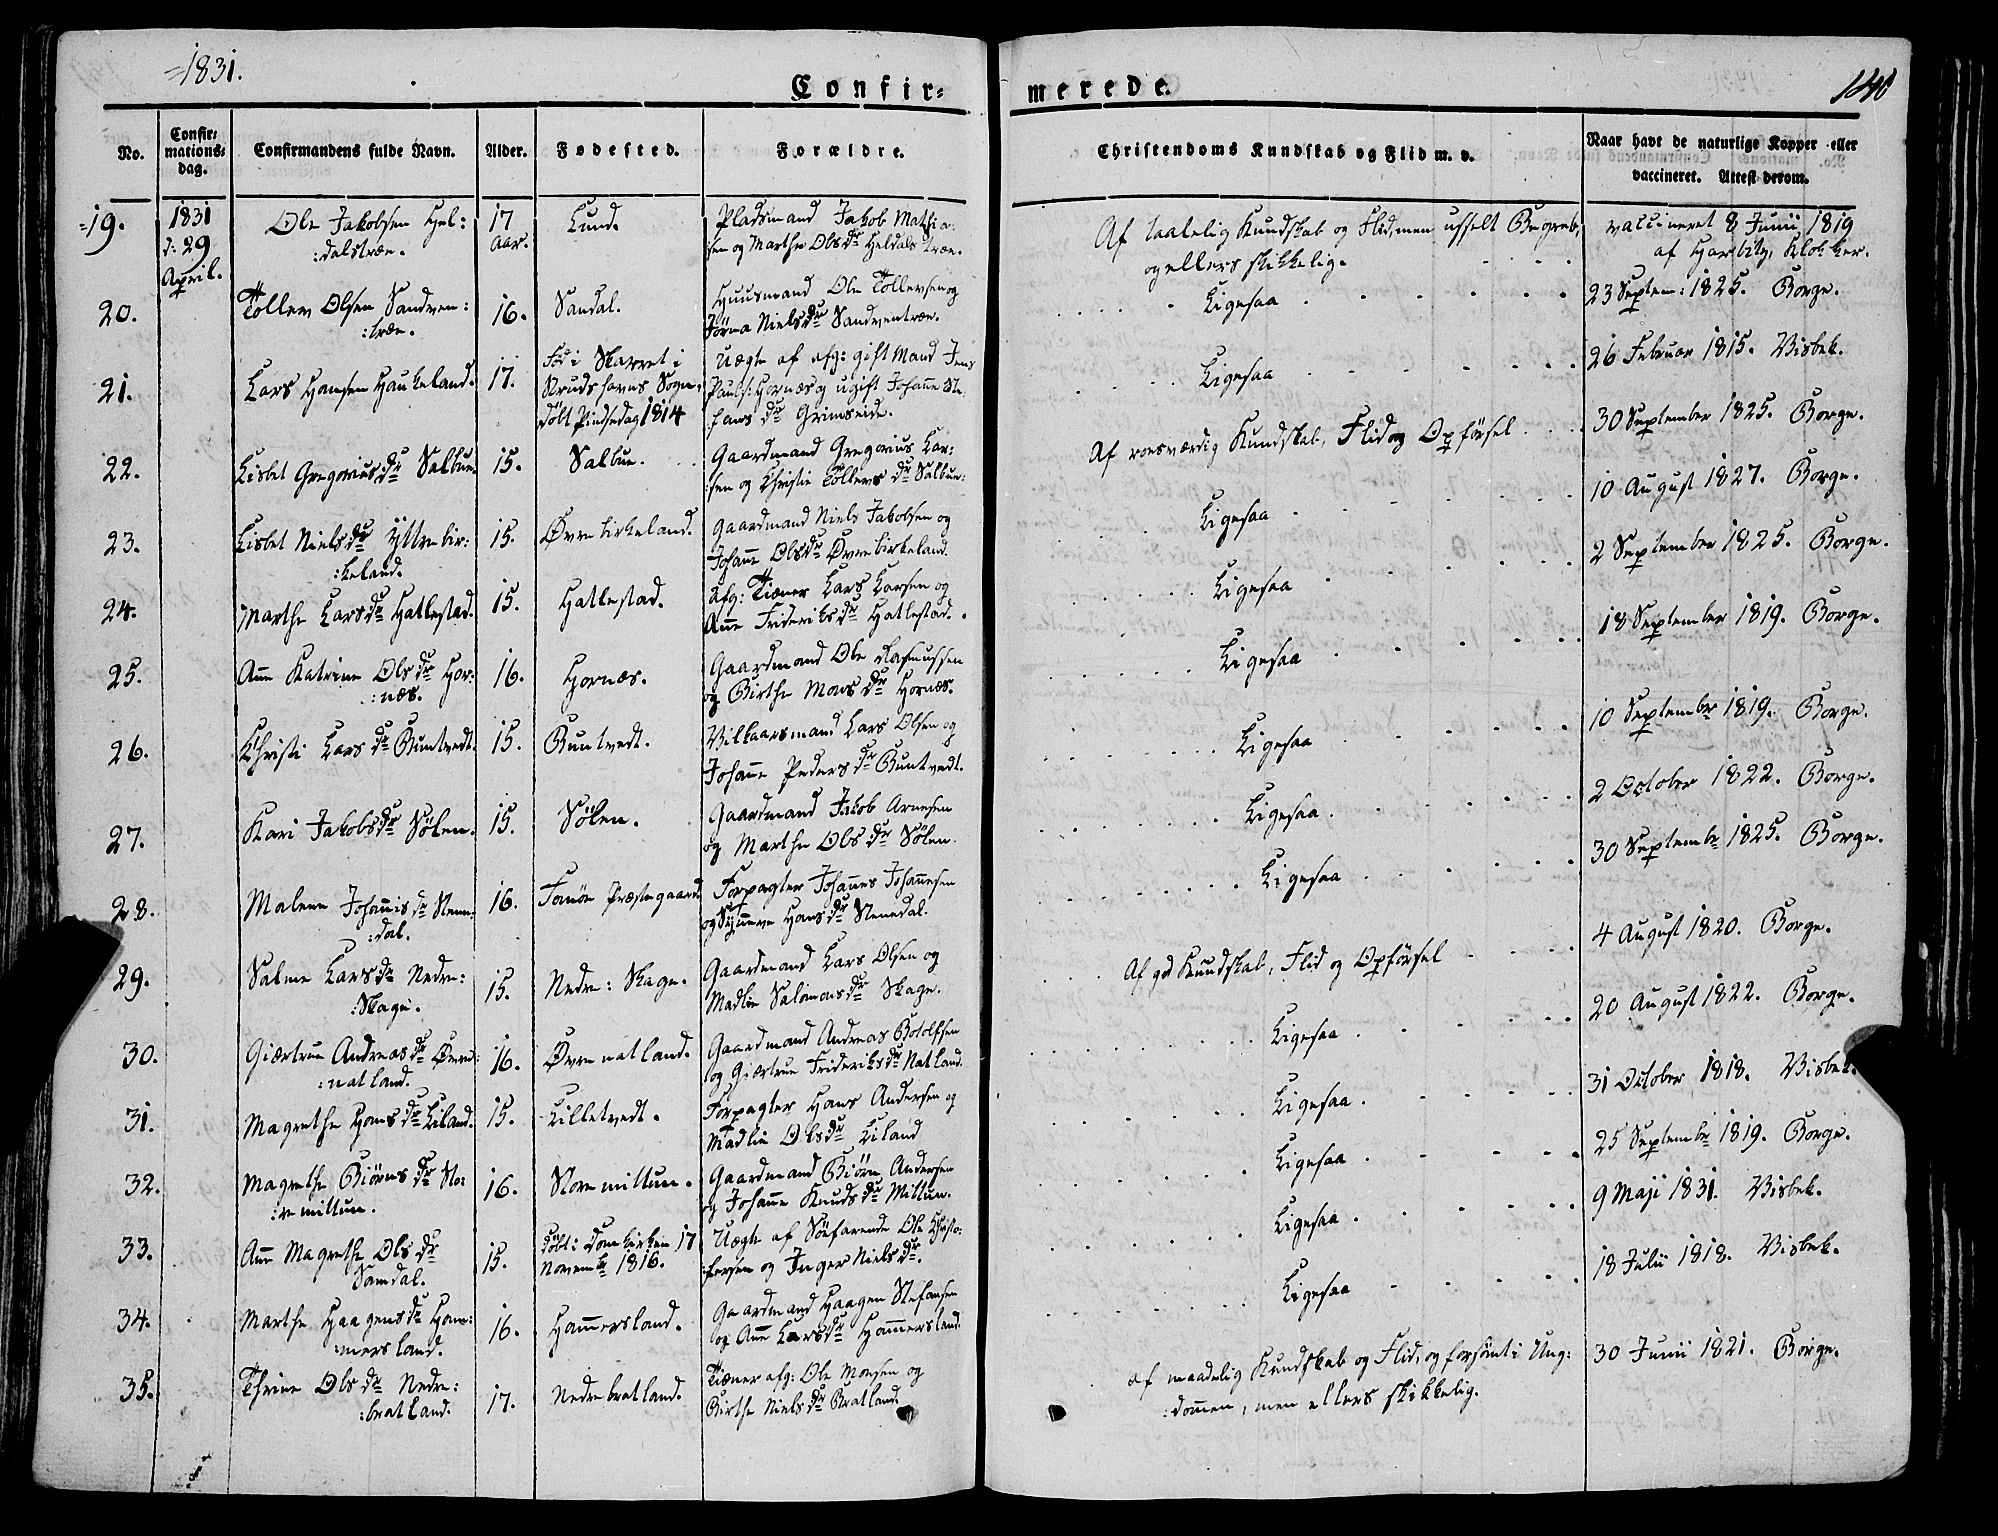 =1831.
Confir=
merede.
140
No.
Confir=
mations=
dag.
Confirmandens fulde Navn.
Alder.
Fødested.
Forældre.
Christendoms Kundskab og Flid m. v.
Naar havt de naturlige Kopper eller
vaccineret. Attest derom.
=19.
1831
d: 29
April.
Ole Jakobsen Hel:
:dalstræe.
17
Aar.
Lund.
Pladsmand Jakob Mathia:
sen og Marthe Olsdr Heldalstræe.
Af taalelig Kundskab og Flid, men usselt Begreb,
og ellers skikkelig.
vaccineret 8 Junii 1819
af Hartvig, Klokker.
20.
Tollev Olsen Sandven:
:træe.
16.
Sandal.
Huusmand Ole Tollevsen og
Jörna Nielsdr Sandventræe.
Ligesaa
23 Septem: 1825. Borge.
21.
Lars Hansen Haukeland.
17.
Fød i Skarret i
Strudshavns Sogn.
døbt Pindsedag 1814
Uægte af afg: gift Mand Jens
Pauls: Hornæs og ugift Johanne Ste
fans dr Grimseide.
Ligesaa
26 Februar 1815. Visbek.
22.
Lisbet Gregoriusdr Sælbue.
15.
Sælbue.
Gaardmand Gregorius Lar:
:sen og Christie Tollevs dr Sælbue:
Af roesværdig Kundskab, Flid og Opførsel
30 September 1825. Borge.
23.
Lisbet Nielsdr Yttrebir:
:keland.
15.
Øvrebirkeland.
Gaardmand Niels Jakobsen og
Johanne Olsdr Øvrebirkeland.
Ligesaa
10 August 1827. Borge.
24.
Marthe Larsdr Hatlestad.
15.
Hatlestad.
Afg: Tiæner Lars Larsen og
Anne Frideriksdr Hatlestad.
Ligesaa
2 September 1825. Borge.
25.
Ane Katrine Olsdr Hor:
:næs.
16.
Hornæs.
Gaardmand Ole Rasmussen
og Birthe Monsdr Hornæs.
Ligesaa
18 September 1819. Borge.
26.
Christi Larsdr Buntvedt.
15.
Buntvedt.
Vilkaarsmand Lars Olsen og
Johanne Pedersdr Buntvedt.
Ligesaa
10 Septembr 1819. Borge.
27.
Kari Jakobsdr Sölen.
15.
Sölen.
Gaardmand Jakob Arnesen
og Marthe Olsdr Sölen.
Ligesaa
2 October 1822. Borge.
28.
Malene Johannisdr Stene:
:dal.
16.
Fanöe Præstegaard.
Forpagter Johannes Johannesen
og Synneve Hansdr Stenedal.
Ligesaa
30 Septembr 1825. Borge.
29.
Salme Larsdr Nedre:
:Skage.
15.
Nedre: Skage.
Gaardmand Lars Olsen og
Madlie Salomonsdr Skage.
Af god Kundskab, Flid og Opførsel
4 August 1820. Borge.
30.
Giærtrue Andreasdr Øvre:
:natland.
16.
Øvrenatland.
Gaardmand Andreas Botolfsen
og Giærtrue Frideriksdr Natland.
Ligesaa
20 August 1822. Borge.
31.
Magrethe Hansdr Liland.
15.
Lilletvedt.
Forpagter Hans Andersen og
Madlie Olsdr Liland
Ligesaa
31 October 1818. Visbek.
32.
Magrethe Biörnsdr Sto:
:remiltun.
16.
Storemiltun.
Gaardmand Biörn Andersen
og Johanne Knudsdr Miltun.
Ligesaa
25 Septembr 1819. Borge.
33.
Ane Magrethe Olsdr
Samdal.
15.
døbt i Domkirken 17
Novembr 1816.
Uægte af Söefarende Ole Christo:
:fersen og Inger Nielsdr.
Ligesaa
9 Maji 1831. Visbek.
34.
Marthe Haagensdr Ham:
:mersland.
16.
Hammersland.
Gaardmand Haagen Stefansen
og Anne Larsdr Hammersland.
Ligesaa
18 Julii 1818. Visbek.
35.
Thrine Olsdr Nedre:
:bratland.
17.
Nedrebratland.
Tiæner afg: Ole Monsen og
Birthe Nielsdr Bratland.
af maadelig Kundskab og Flid, og forsömt i Ung:
:dommen, men ellers skikkelig.
30 Junii 1821. Borge.